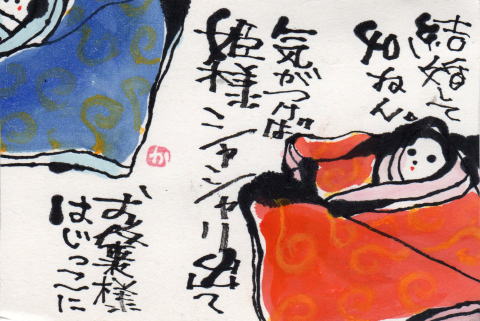 結婚して
40ねん。
気がつけば
姫様シャシャリ出て
お内裏様
はじっこに
か